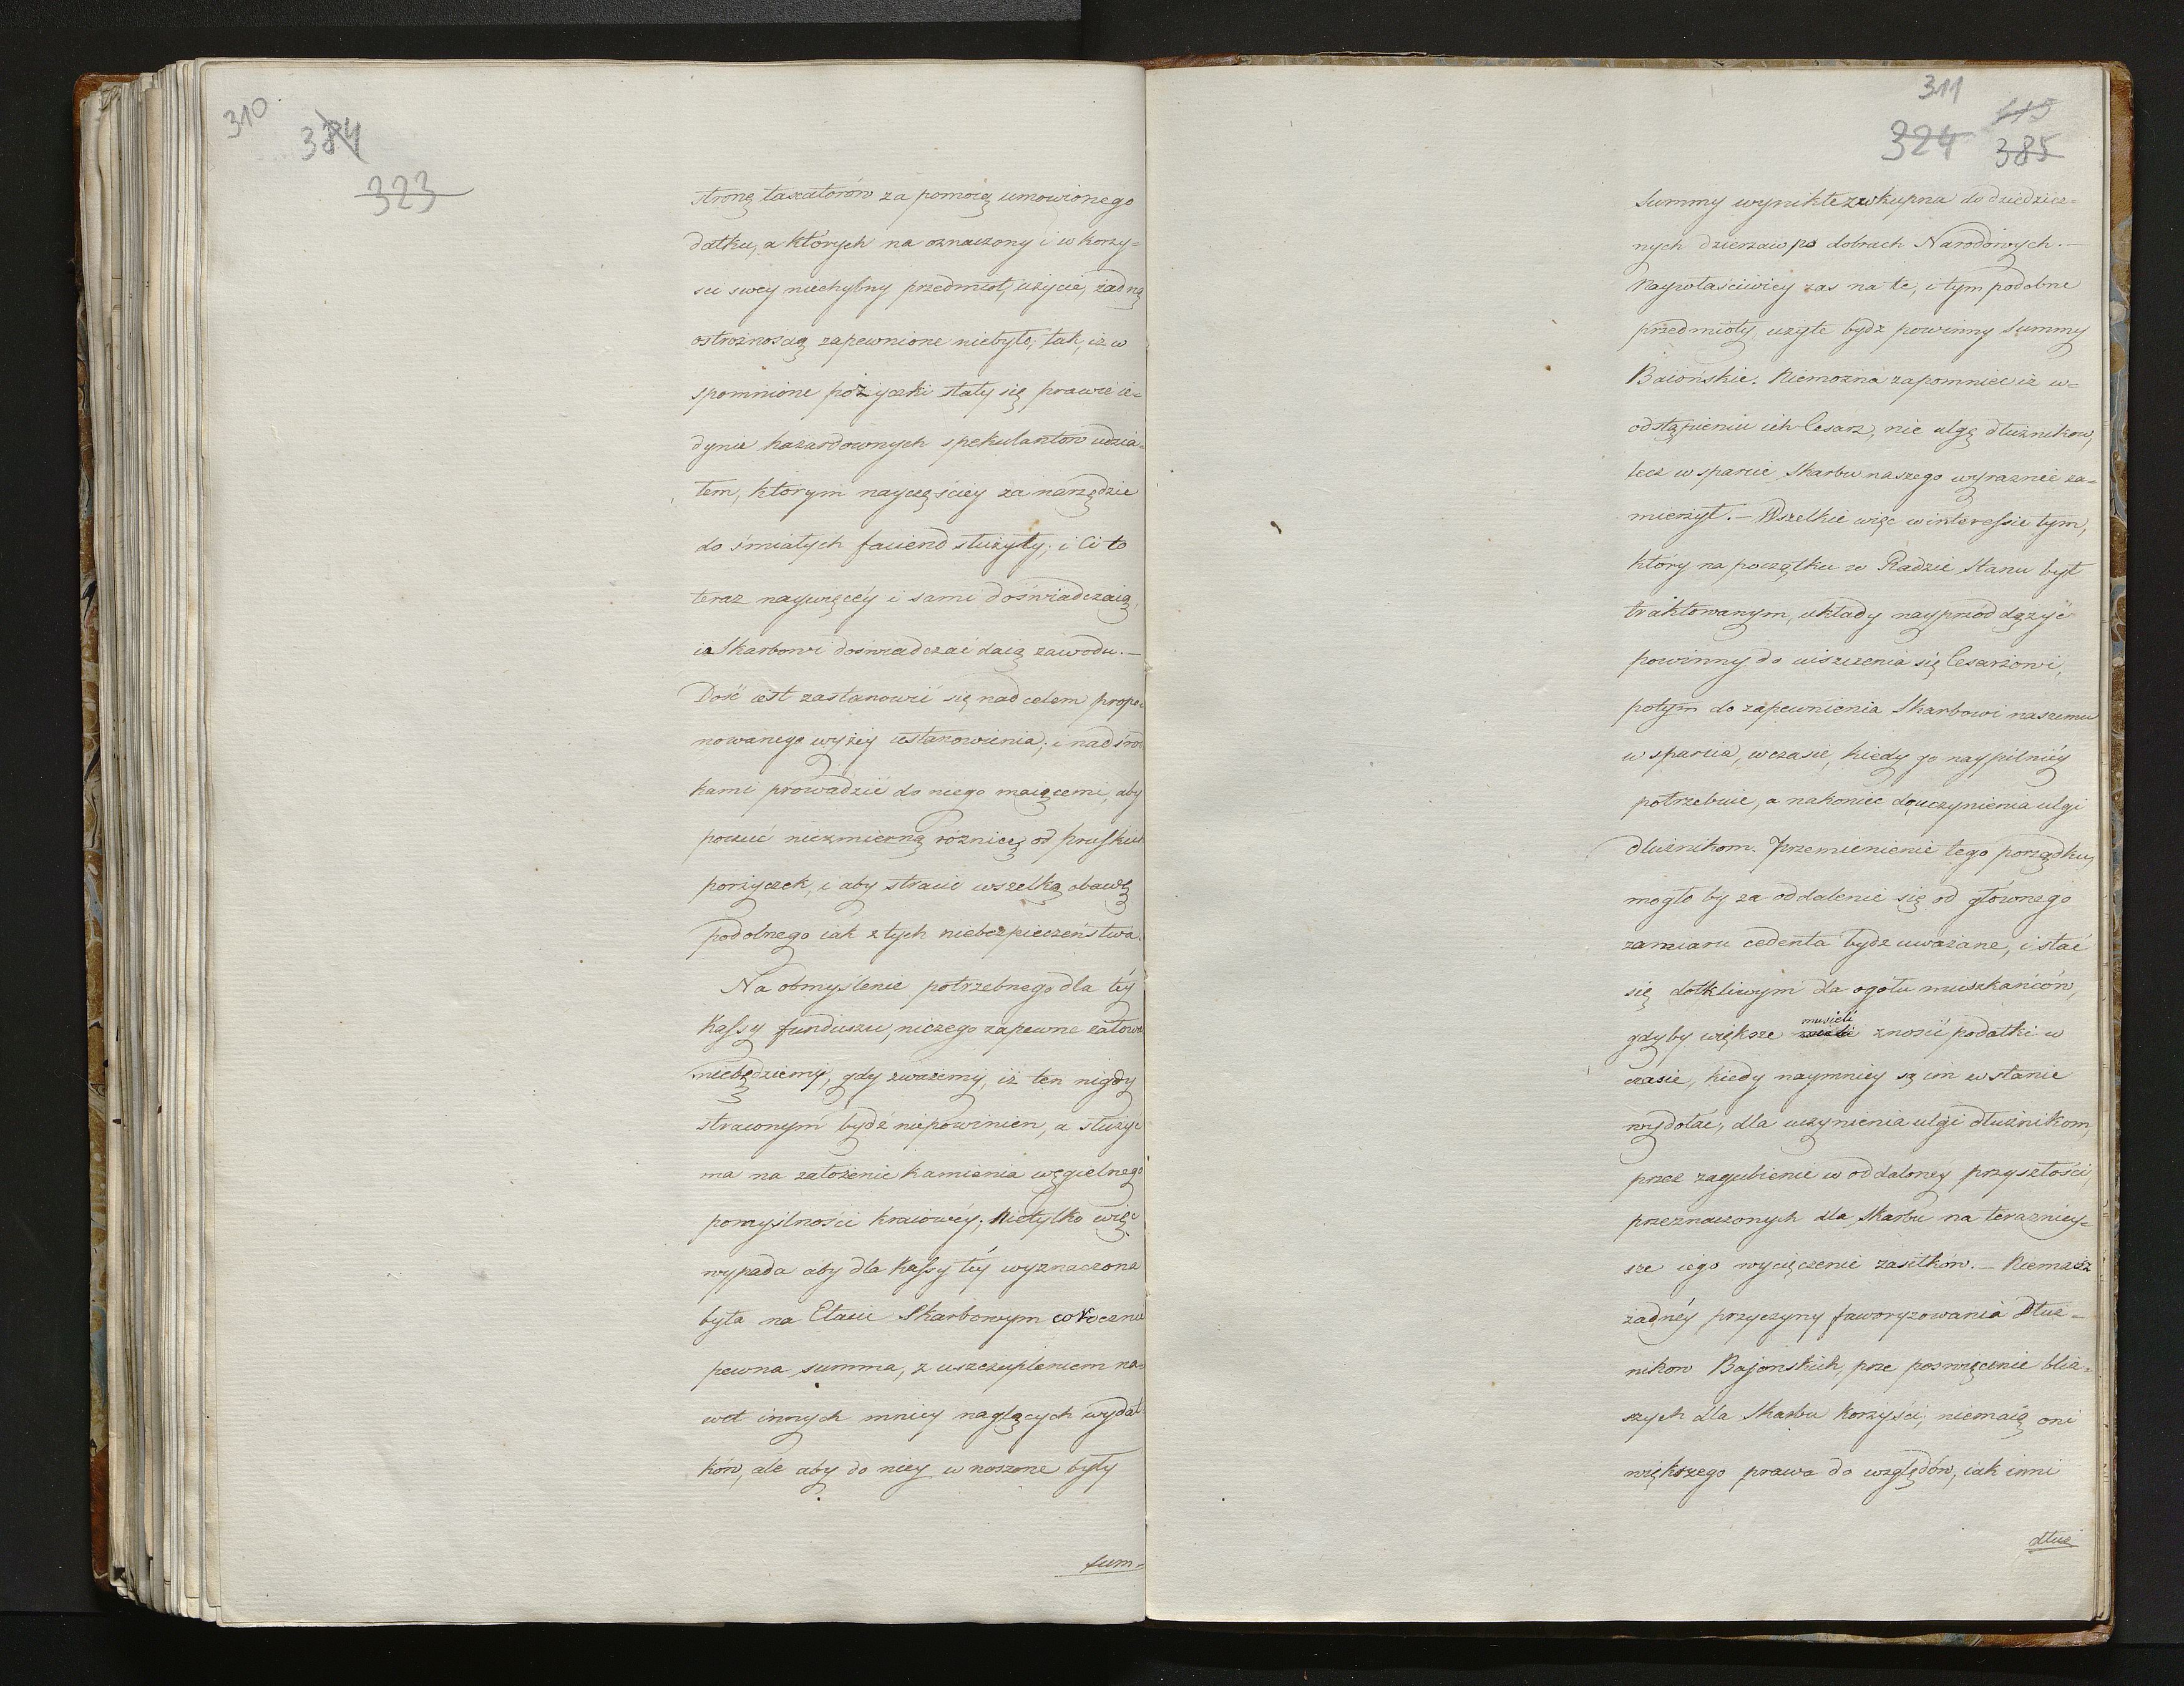 310
384
323
stronę taxatorów za pomocą umowionego
datku, a których na oznaczony i w korzy=
sci swey niechybny przedmiot, użycie, żadną
ostrożnością zapewnione niebyło, tak, iż w
spomnione pożyczki stały się prawie ie=
dynie hazardownych spekulantow udzia=
łem, którym nayczęściey za narzędzie
do śmiałych faciend służyły; i Ci to
teraz naywięcéy i sami doświadczaią,
i Skarbowi doswiadczać daią zawodu. —
Dość iest zastanowić się nad celem propo=
nowanego wyżey ustanowienia, i nad środ
kami prowadzić do niego maiącemi, aby
poczuć niezmierną róznicę od pruskich
pożyczek, i aby stracić wszelką obawę
podobnego iak z tych niebezpieczeństwa.
Na obmyślenie potrzebnego dla téy
Kassy funduszu, niczego zapewne żałować
niebędziemy, gdy zważemy, iż ten nigdy
straconym bydź niepowinien, a służyć
ma na założenie kamienia węgielnego
pomyślności kraiowéy; Nietylko więc
wypada aby dla Kassy téy wyznaczona
była na Etacie Skarbowym corocznie
pewna summa, z uszczupleniem na=
wet innych mniey naglących wydat=
ków, ale aby do niey wnoszone były
sum=
311
115
324 385
Summy wynikłe z wkupna do dziedzicz=
nych dzierzaw po dobrach Narodowych. —
Naywłaściwiey zas na te, i tym podobne
przedmioty, użyte bydz powinny Summy
Baiońskie. Niemozna zapomnieć iż w=
odstąpieniu ich Cesarz, nie ulgę dłużnikow,
lecz wsparcie Skarbu naszego wyraznie za=
mierzył. — Wszelkie więc w interessie tym,
który na początku w Radzie Stanu był
traktowanym, układy nayprzód dązyć
powinny do uiszczenia się Cesarzowi,
potym do zapewnienia Skarbowi naszemu
wsparcia, w czasie, kiedy go naypilniéy
potrzebuie, a nakoniec do uczynienia ulgi
dłużnikom. Przemienienie tego porządku,
mogło by za oddalenie się od głównego
zamiaru cedenta bydz uważane, i stać
się dotkliwym dla ogółu mieszkańców,
musieli
gdyby większe znosić podatki w
czasie, kiedy naymniey są im w stanie
wydołać, dla uczynienia ulgi dłużnikom,
przez zagubienie w oddaloney przyszłości,
przeznaczonych dla Skarbu na terazniey=
sze iego wycięczenie zasiłków. — Niemasz
żadnéy przyczyny faworyzowania Dłuz=
nikow Bajonskich, prze poswięcenie bliż=
szych dla Skarbu korzyści; niemaią oni
większego prawa do względów, iak inni
dłuż